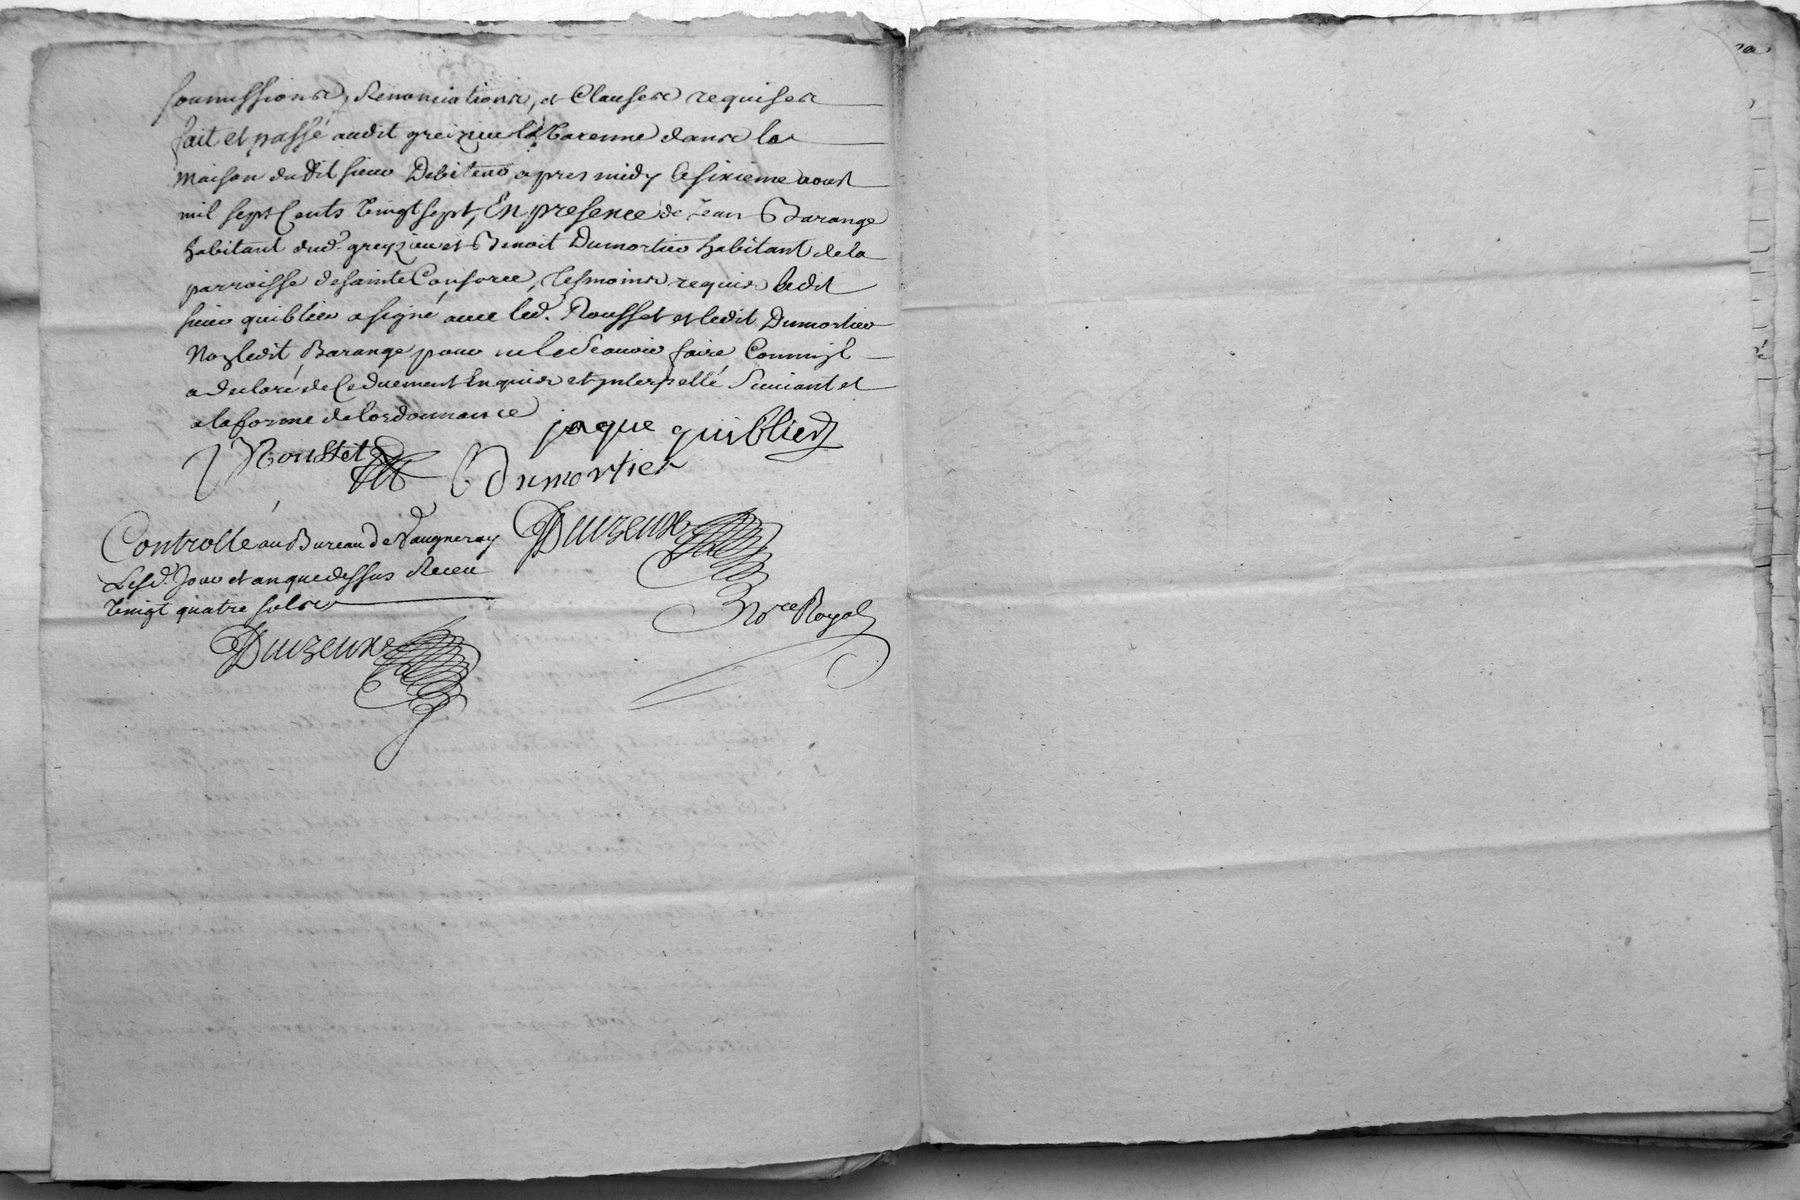 soumissions, Renonciations, et Clauses requises
fait et passé audit greizieu la Varenne dans la
maison dudit sieur Debiteur apres midy le sixieme aoust
mil sept Cents vingt sept, En presence de Jean Barange
habitant dud. greyzieu et Benoit Dumortier habitant de la
parroisse de sainte Consorce, Tesmoins requis ledit
sieur quiblier a signé avec led. Rousset et ledit Dumortier
Non ledit Barange pour ne le Scavoir faire Comm'jl
a declaré de Ce duement Enquis et jnterpellé Suivant et
a la forme de lordonnance
jaque quiblier
Rousset
Dumortier
Controllé au Bureau de Vaugneray
Lesd. Jour et an que dessus Receu
vingt quatre sols
Duizeux
Nore Royal
Duizeux